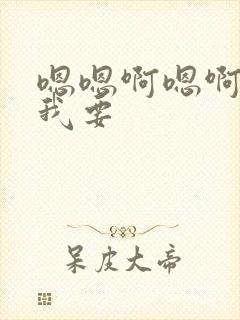 嗯嗯啊嗯啊
我要
呆皮大帝